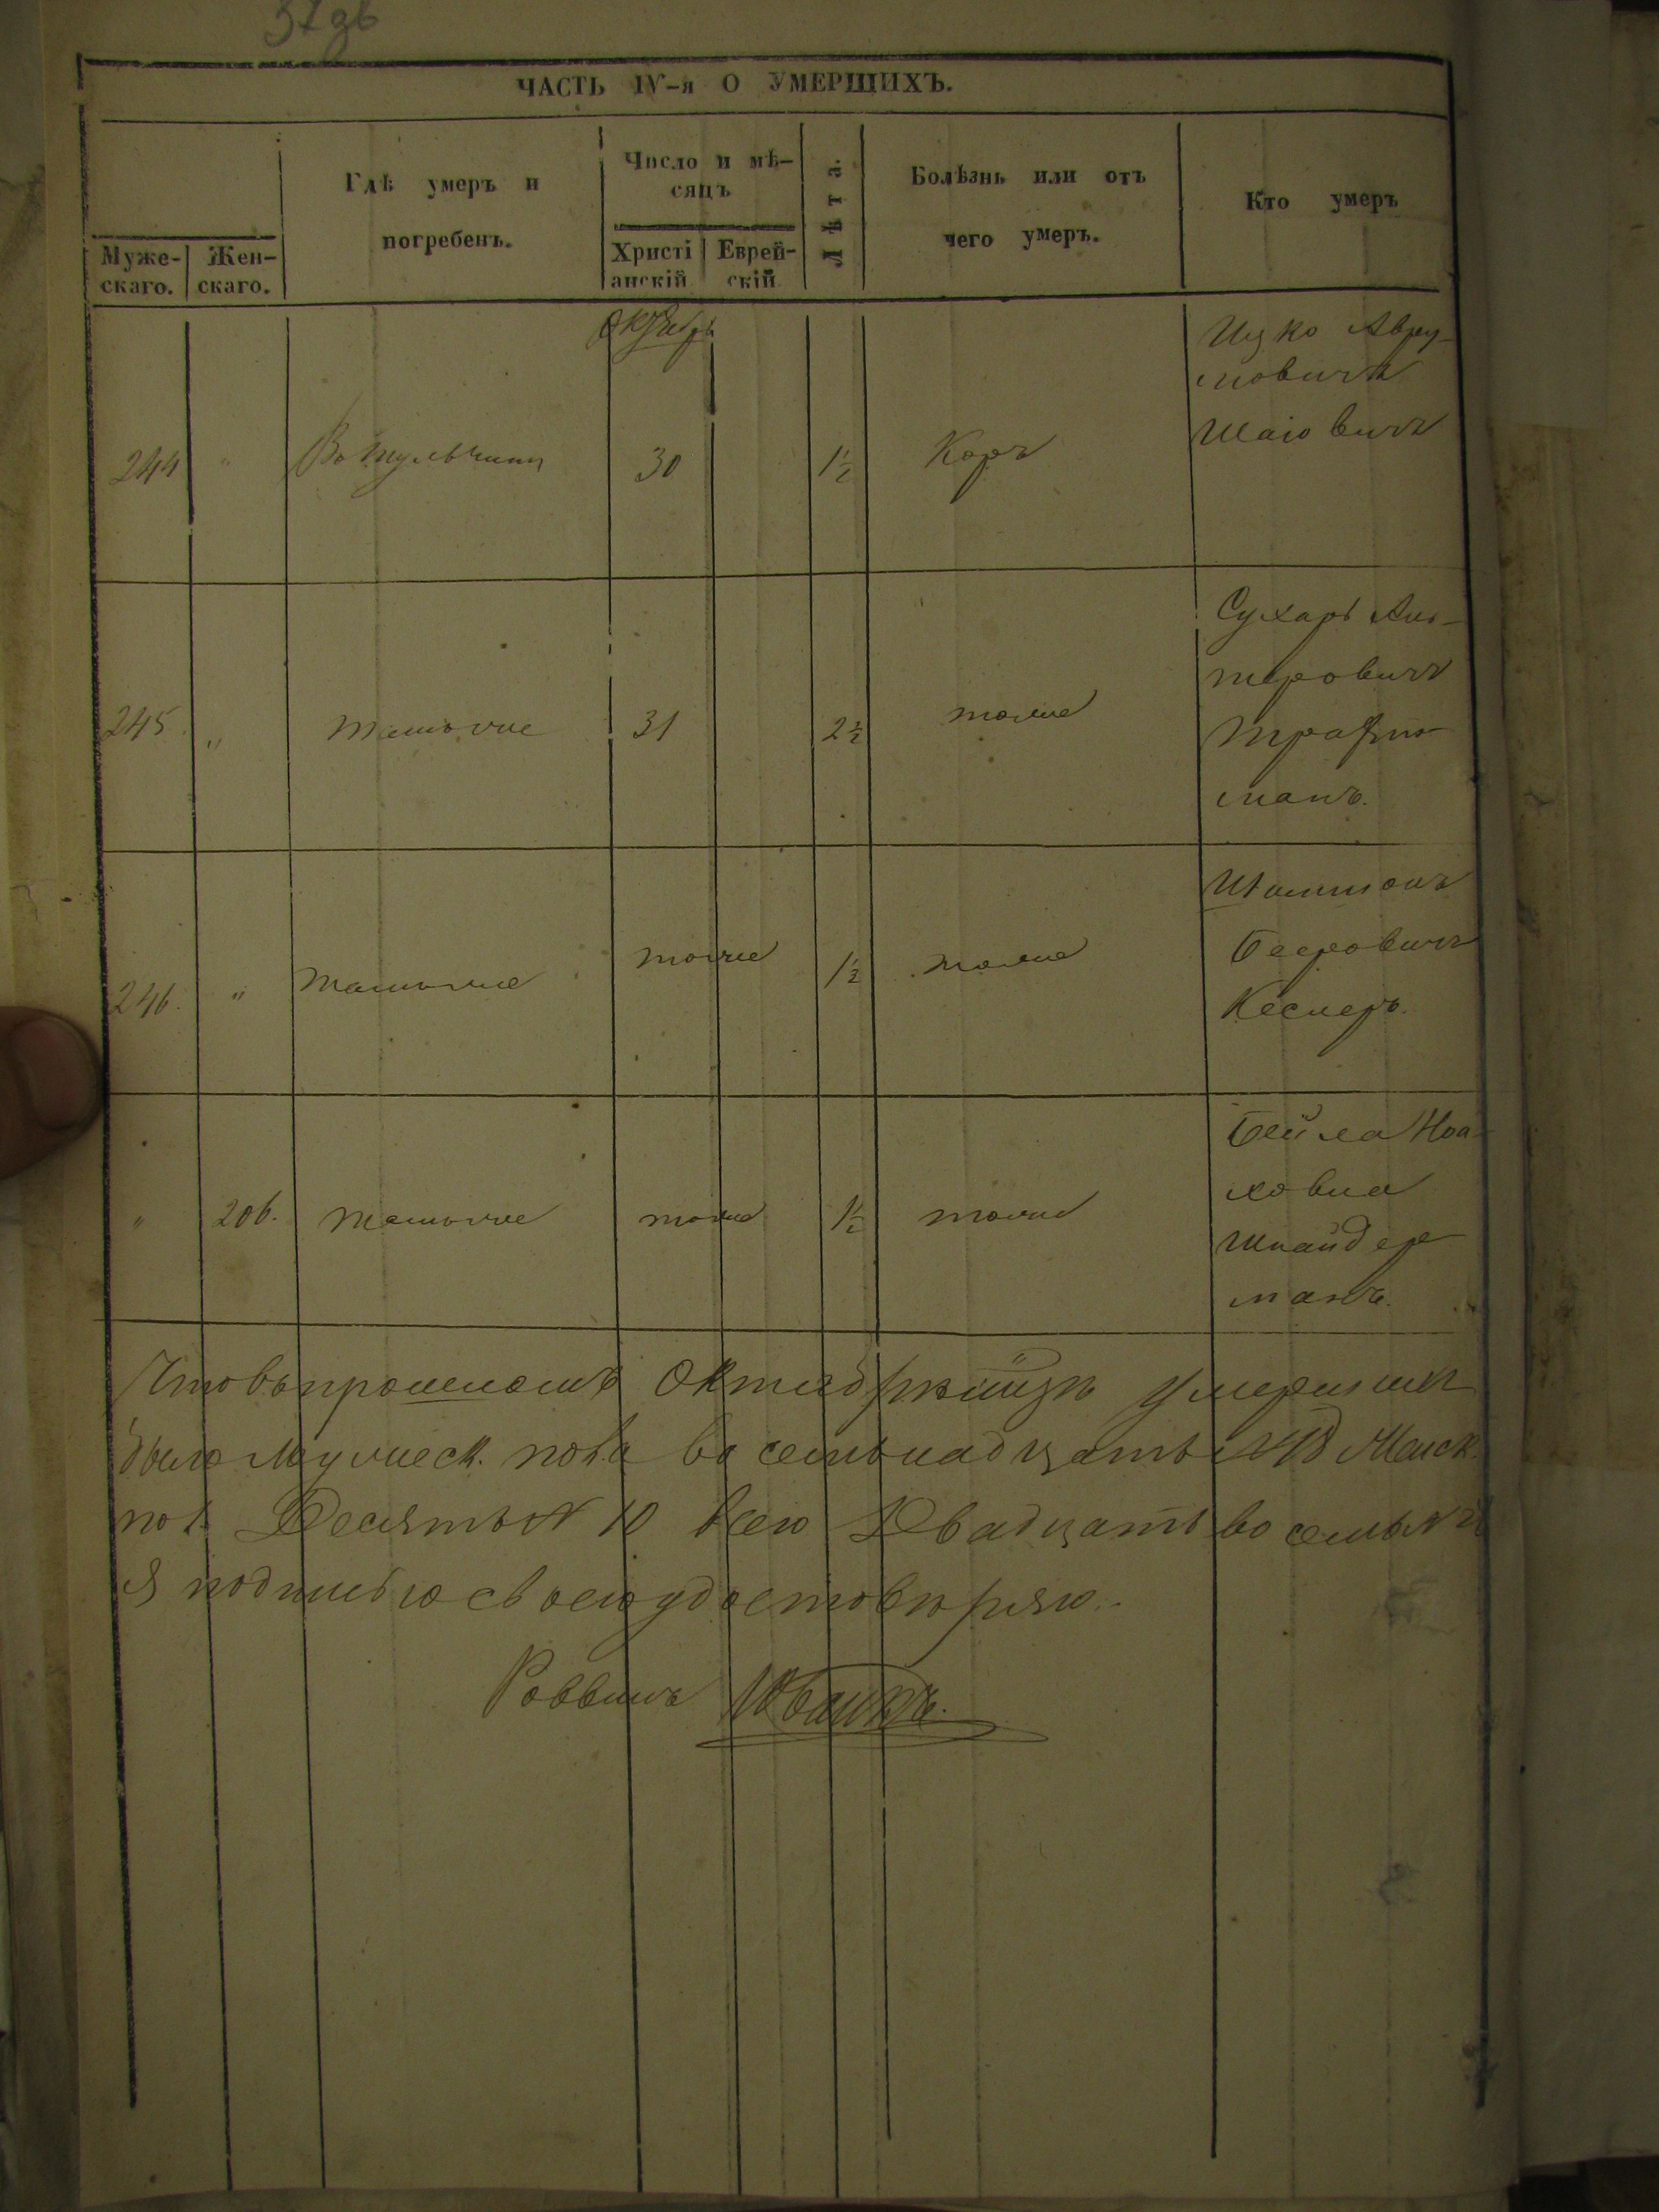 ЧАСТЬ IV-я О УМЕРШИХЪ.
Муже-скаго.
Жен-скаго.
Гдѣ умеръ и
погребенъ.
Число и мѣ-
сяцъ
Христі анскій
Еврей-скій
Лѣта.
Болѣзнь или отъ
чего умеръ.
Кто умеръ
Октябрь
244 " Въ Тульчинѣ 30 1½ Корь
Ицко Авру-
мовичъ
Шаiовичъ
245. " Тамъже 31 2½ тоже
Сухаръ Аль-
теровичъ
манъ.
246. " Тамъже тоже 1½ тоже
Шимшонъ
Бееровичъ
Кеснеръ.
" 206. Тамъже тоже 1½ тоже
Бейла Ноа-
ховна
Шнайдер
манъ.
Что въ прошломъ Октябрѣ умершихъ
было Мужеск. пола восемьнадцать № 18 Женск.
пол. Десять № 10 всего Двадцать восемь №
я подписью своею удостовѣряю.
Раввинъ